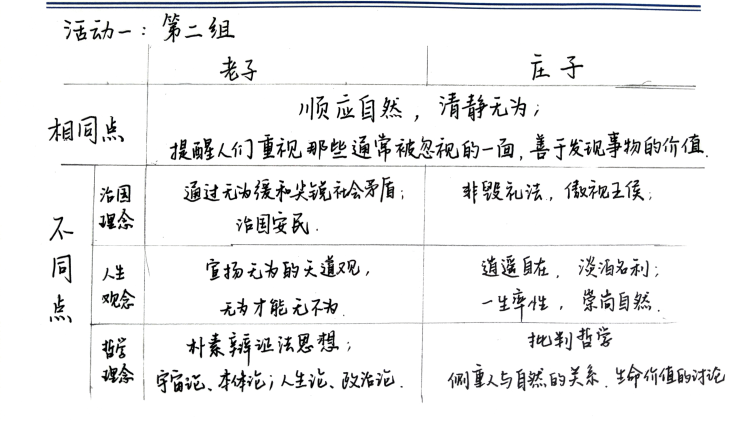 活动一：第二组
老子 庄子
相同点
顺应自然，清静无为；
提醒人们重视那些通常被忽视的一面，善于发现事物的价值.
不同点
治国理念
通过无为缓和尖锐社会矛盾；
治国安民.
非毁礼法，傲视王侯；
人生观念
宣扬无为的天道观，
无为才能无不为.
逍遥自在，淡泊名利；
一生率性，崇尚自然.
哲学理念
朴素辩证法思想；
宇宙论、本体论；人生论、政治论.
批判哲学
侧重人与自然的关系.生命价值的讨论